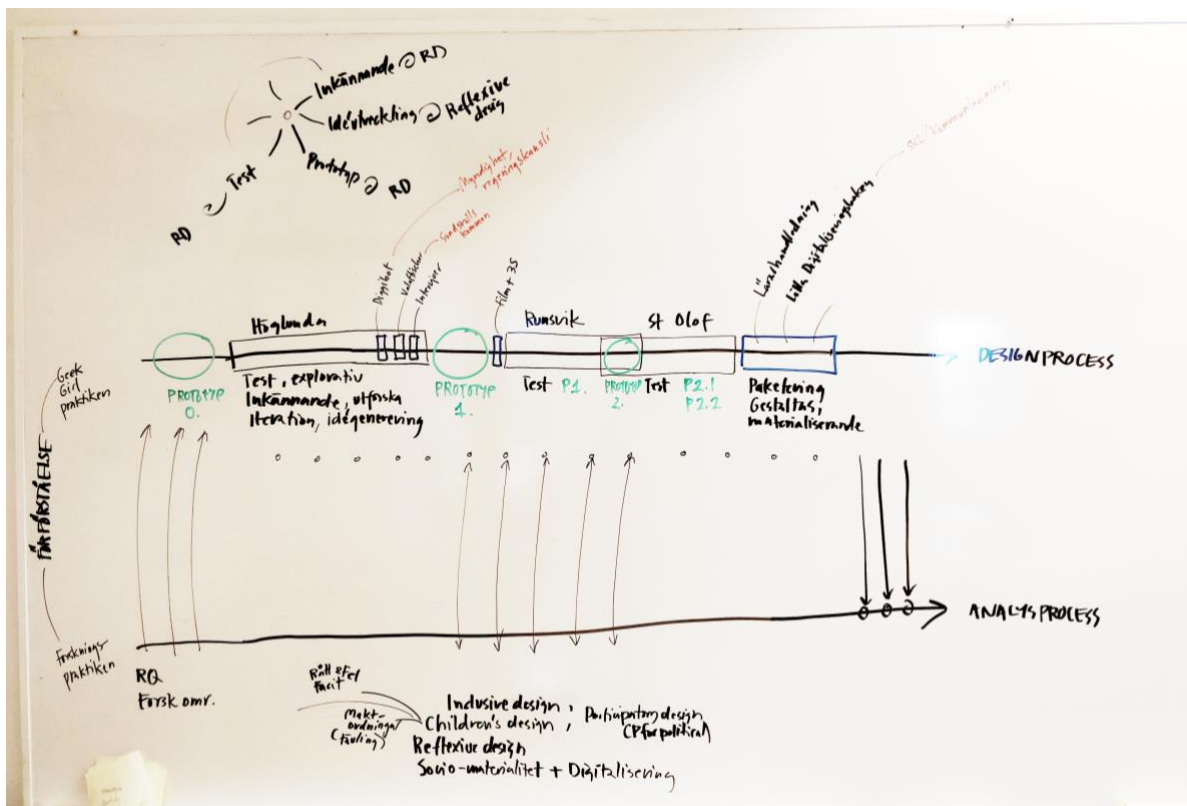 Inkännande RD
Idéutveckling Reflexive
desig
Prototyp RD
Test
RD
Myndighet,
regeringskansli
Sundsvalls
kommun
Diggibot
Intervjuer
Film + 35
Lärarhandledning
Lilla Digitaliseringsboken
Höglunda
Rumsvik
St Olof
DESIGNPROCESS
Geek
Girl
praktiken
PROTOTYP
0.
Test, explorativ
Inkännande, utforska
Iteration, idégenerering
PROTOTYP
1.
Test P1.
PROTOTYP
2.
Test P2.1
P2.2
Paketering
Gestaltas,
materialiserande
FÖRFÖRSTÅELSE
Forsknings-
praktiken
ANALYSPROCESS
RQ
Forsk omr.
Rätt & Fel
Facit
Makt-
ordningar
(tävling)
Inclusive design,
Children's design, Participatory design
(P for political)
Reflexive design
Socio-materialitet + Digitalisering